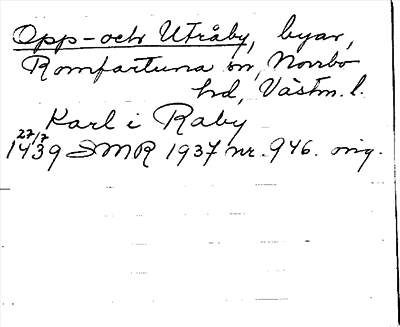 Opp- och Utråby, byar,
Romfartuna sn, Norrbo
hd, Västm. l.
Karl i Raby
27/7
1439 SMR 1937 nr. 946. orig.